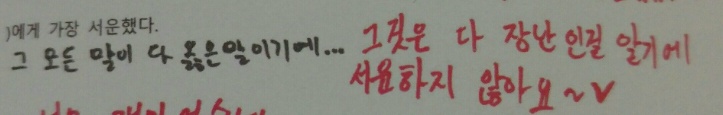 )에게 가장 서운했다.
그 모든 말이 다 옳은말이기에...
그것은 다 장난인걸 알기에
서운하지 않아요~V